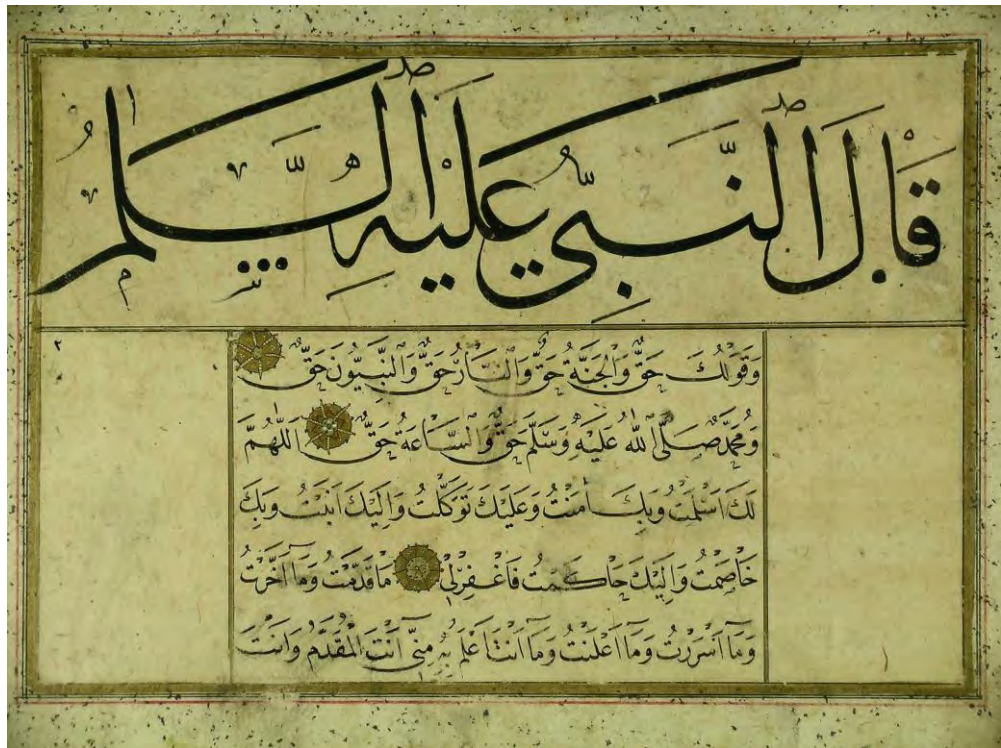 قَالَ ٱلنَّبِيُّ عَلَيْهِ ٱلسَّلٰمُ
٢
وَقَوْلُكَ حَقٌّ وَالْجَنَّةُ حَقٌّ وَالنَّارُ حَقٌّ وَالنَّبِيُّونَ حَقٌّ
وَمُحَمَّدٌ صَلَّى اللّٰهُ عَلَيْهِ وَسَلَّمَ حَقٌّ وَالسَّاعَةُ حَقٌّ اَللّٰهُمَّ
لَكَ اَسْلَمْتُ وَبِكَ اٰمَنْتُ وَعَلَيْكَ تَوَكَّلْتُ وَاِلَيْكَ اَنَبْتُ وَبِكَ
خَاصَمْتُ وَاِلَيْكَ حَاكَمْتُ فَاغْفِرْلِي مَا قَدَّمْتُ وَمَا اَخَّرْتُ
وَمَا اَسْرَرْتُ وَمَا اَعْلَنْتُ وَمَا اَنْتَ اَعْلَمُ بِهِ مِنِّي اَنْتَ الْمُقَدِّمُ وَاَنْتَ